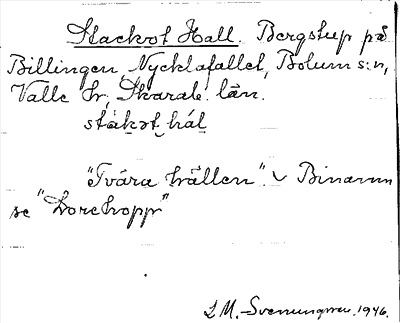 Stackot Hall. Bergstup på
Billingen, Nycklafallet, Bolum s:n,
Valle hr, Skarab. län.
stákot hál
"Tvära hällen" Binamn
se "Lorehopp"
L M. Svenungsson. 1946.